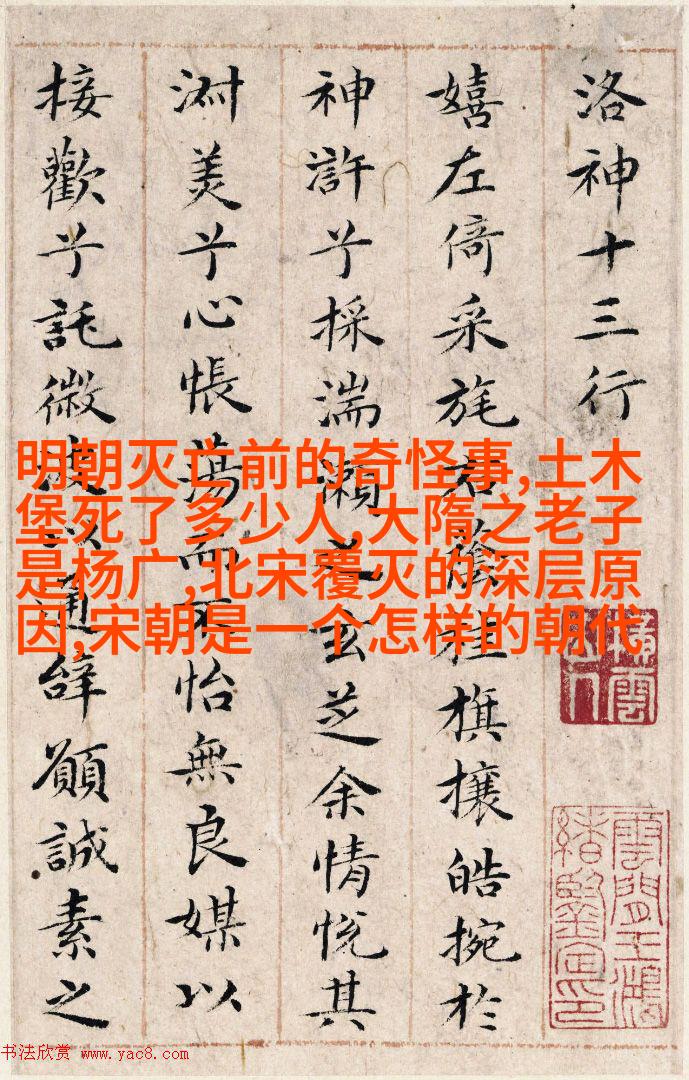 洛神十三行
嬉左倚采旄右蔭桂旗攘皓捥於
神許兮採湍瀨之玄芝余情悅其
淑美兮心悵蕩而不怡無良媒以
接歡兮託微波以通辭願誠素之
明朝灭亡前的奇怪事,土木
堡死了多少人,大隋之老子
是杨广,北宋覆灭的深层原
因,宋朝是一个怎样的朝代
雲間王鴻
緒鑒定印
书法欣赏 www.yac8.com